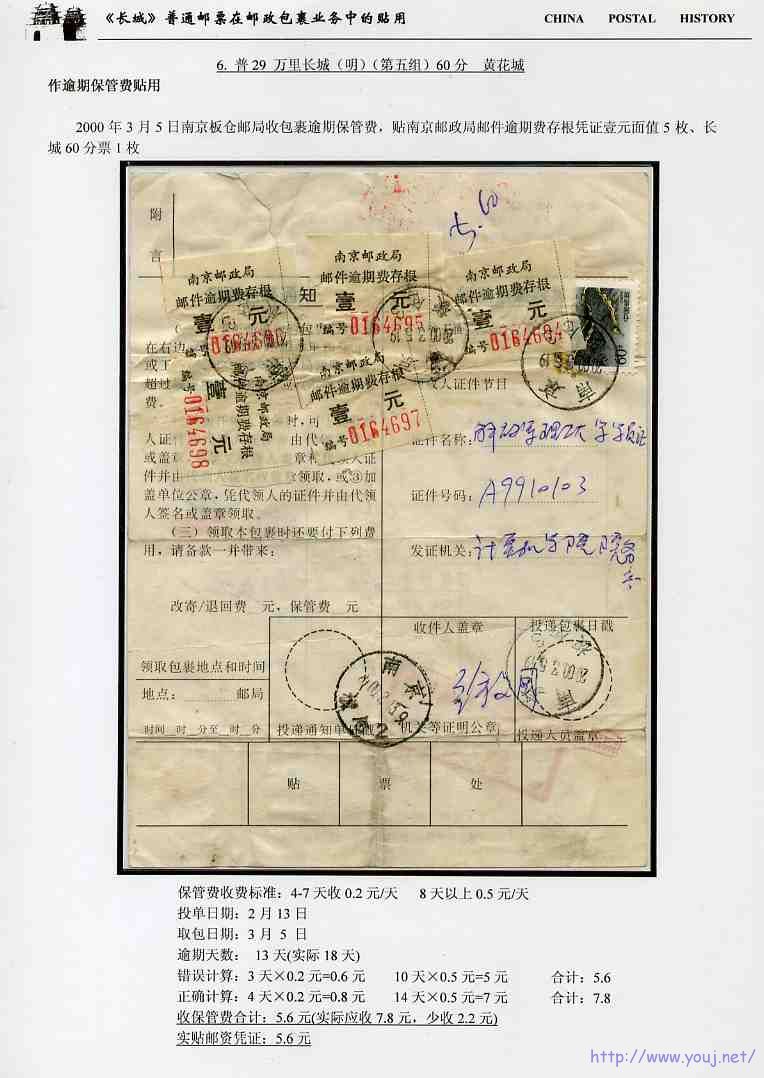 《长城》普通邮票在邮政包裹业务中的贴用 CHINA POSTAL HISTORY
6. 普29 万里长城（明）（第五组）60分 黄花城
作逾期保管费贴用
2000 年 3 月 5 日南京板仓邮局收包裹逾期保管费，贴南京邮政局邮件逾期费存根凭证壹元面值 5 枚、长
城 60 分票 1 枚
附
言
5.60
南京邮政局
邮件逾期费存根
壹 元
编号 0164696
南京邮政局
邮件逾期费存根
壹 元
编号 0164695
南京邮政局
邮件逾期费存根
壹
编号 0164694
南京邮政局
邮件逾期费存根
壹 元
编号 0164697
南京邮政局
邮件逾期费存根
壹 元
0164698
知
在右边
或工
超过
费。
时，可
人证件
由代
或盖章
件并由
领取，或③加
盖单位公章，凭代领人的证件并由代领
人签名或盖章领取。
（三）领取本包裹时还要付下列费
用，请备款一并带来：
改寄/退回费 元，保管费 元
人证件节目
证件名称：解放军理工大学学员证
证件号码：A9910103
发证机关：计算机学院院务
收件人盖章
投递包裹日戳
领取包裹地点和时间
地点： 邮局
时间 时 分至 时 分
投递通知单日戳
机关等证明公章
投递人员盖章
南京
南京
贴 票 处
保管费收费标准：4-7 天收 0.2 元/天 8 天以上 0.5 元/天
投单日期：2 月 13 日
取包日期：3 月 5 日
逾期天数： 13 天(实际 18 天)
错误计算：3 天×0.2 元=0.6 元 10 天×0.5 元=5 元 合计：5.6
正确计算：4 天×0.2 元=0.8 元 14 天×0.5 元=7 元 合计：7.8
收保管费合计：5.6 元(实际应收 7.8 元，少收 2.2 元)
实贴邮资凭证：5.6 元
http://www.youj.net/